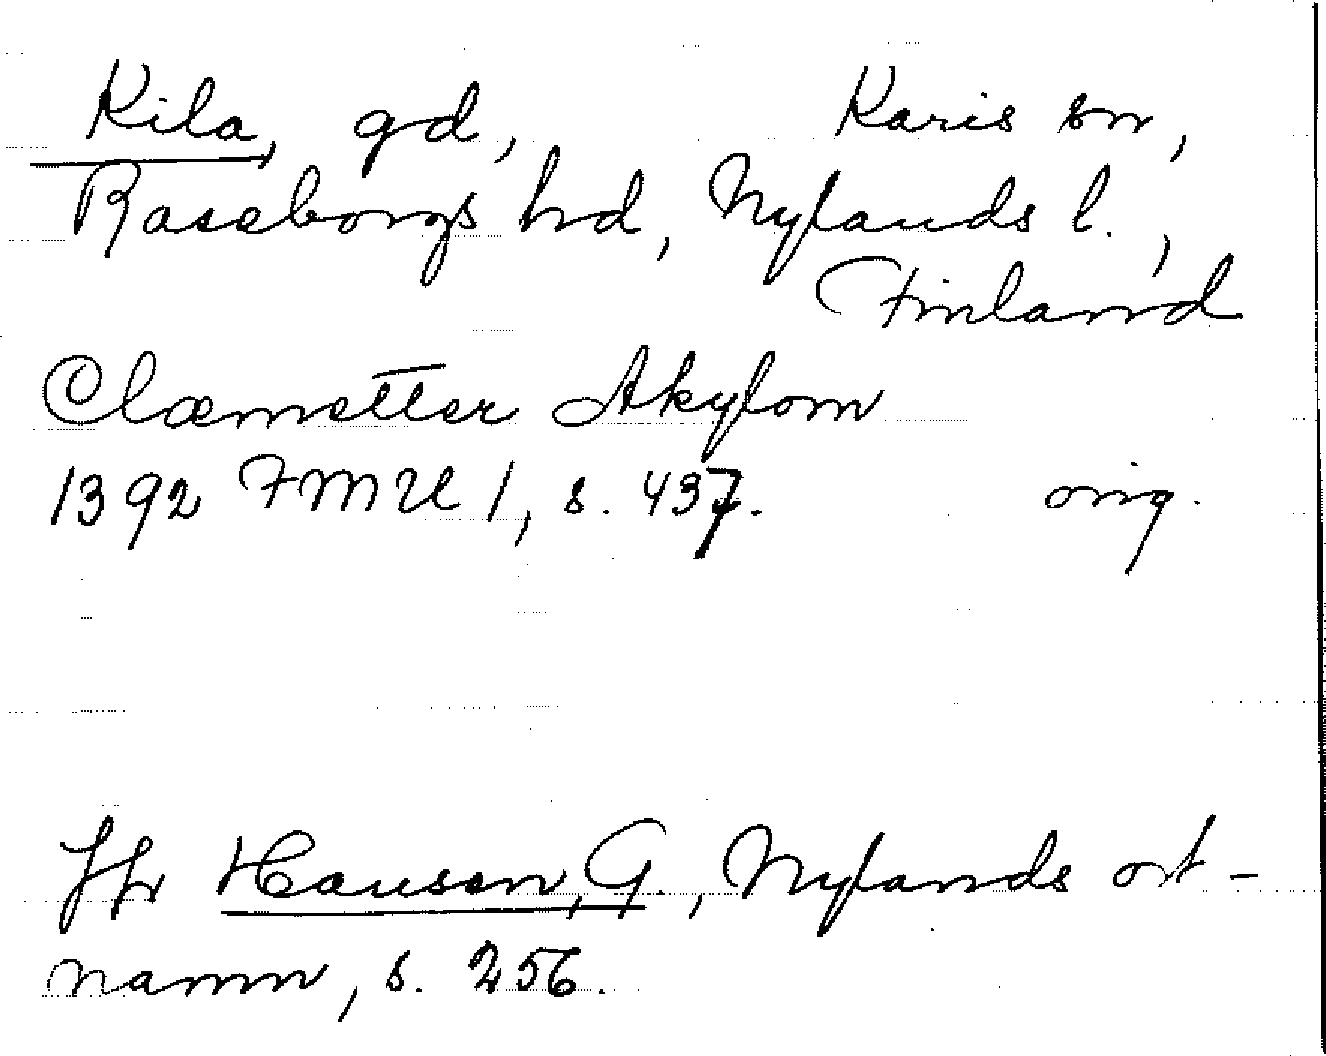 Kila, gd, Karis sn,
Raseborgs hd, Nylands l.,
Finland
Clæmetter Akylom
1392 FMU 1, s. 437. orig.
Jfr Hausen, G., Nylands ort-
namn, s. 256.